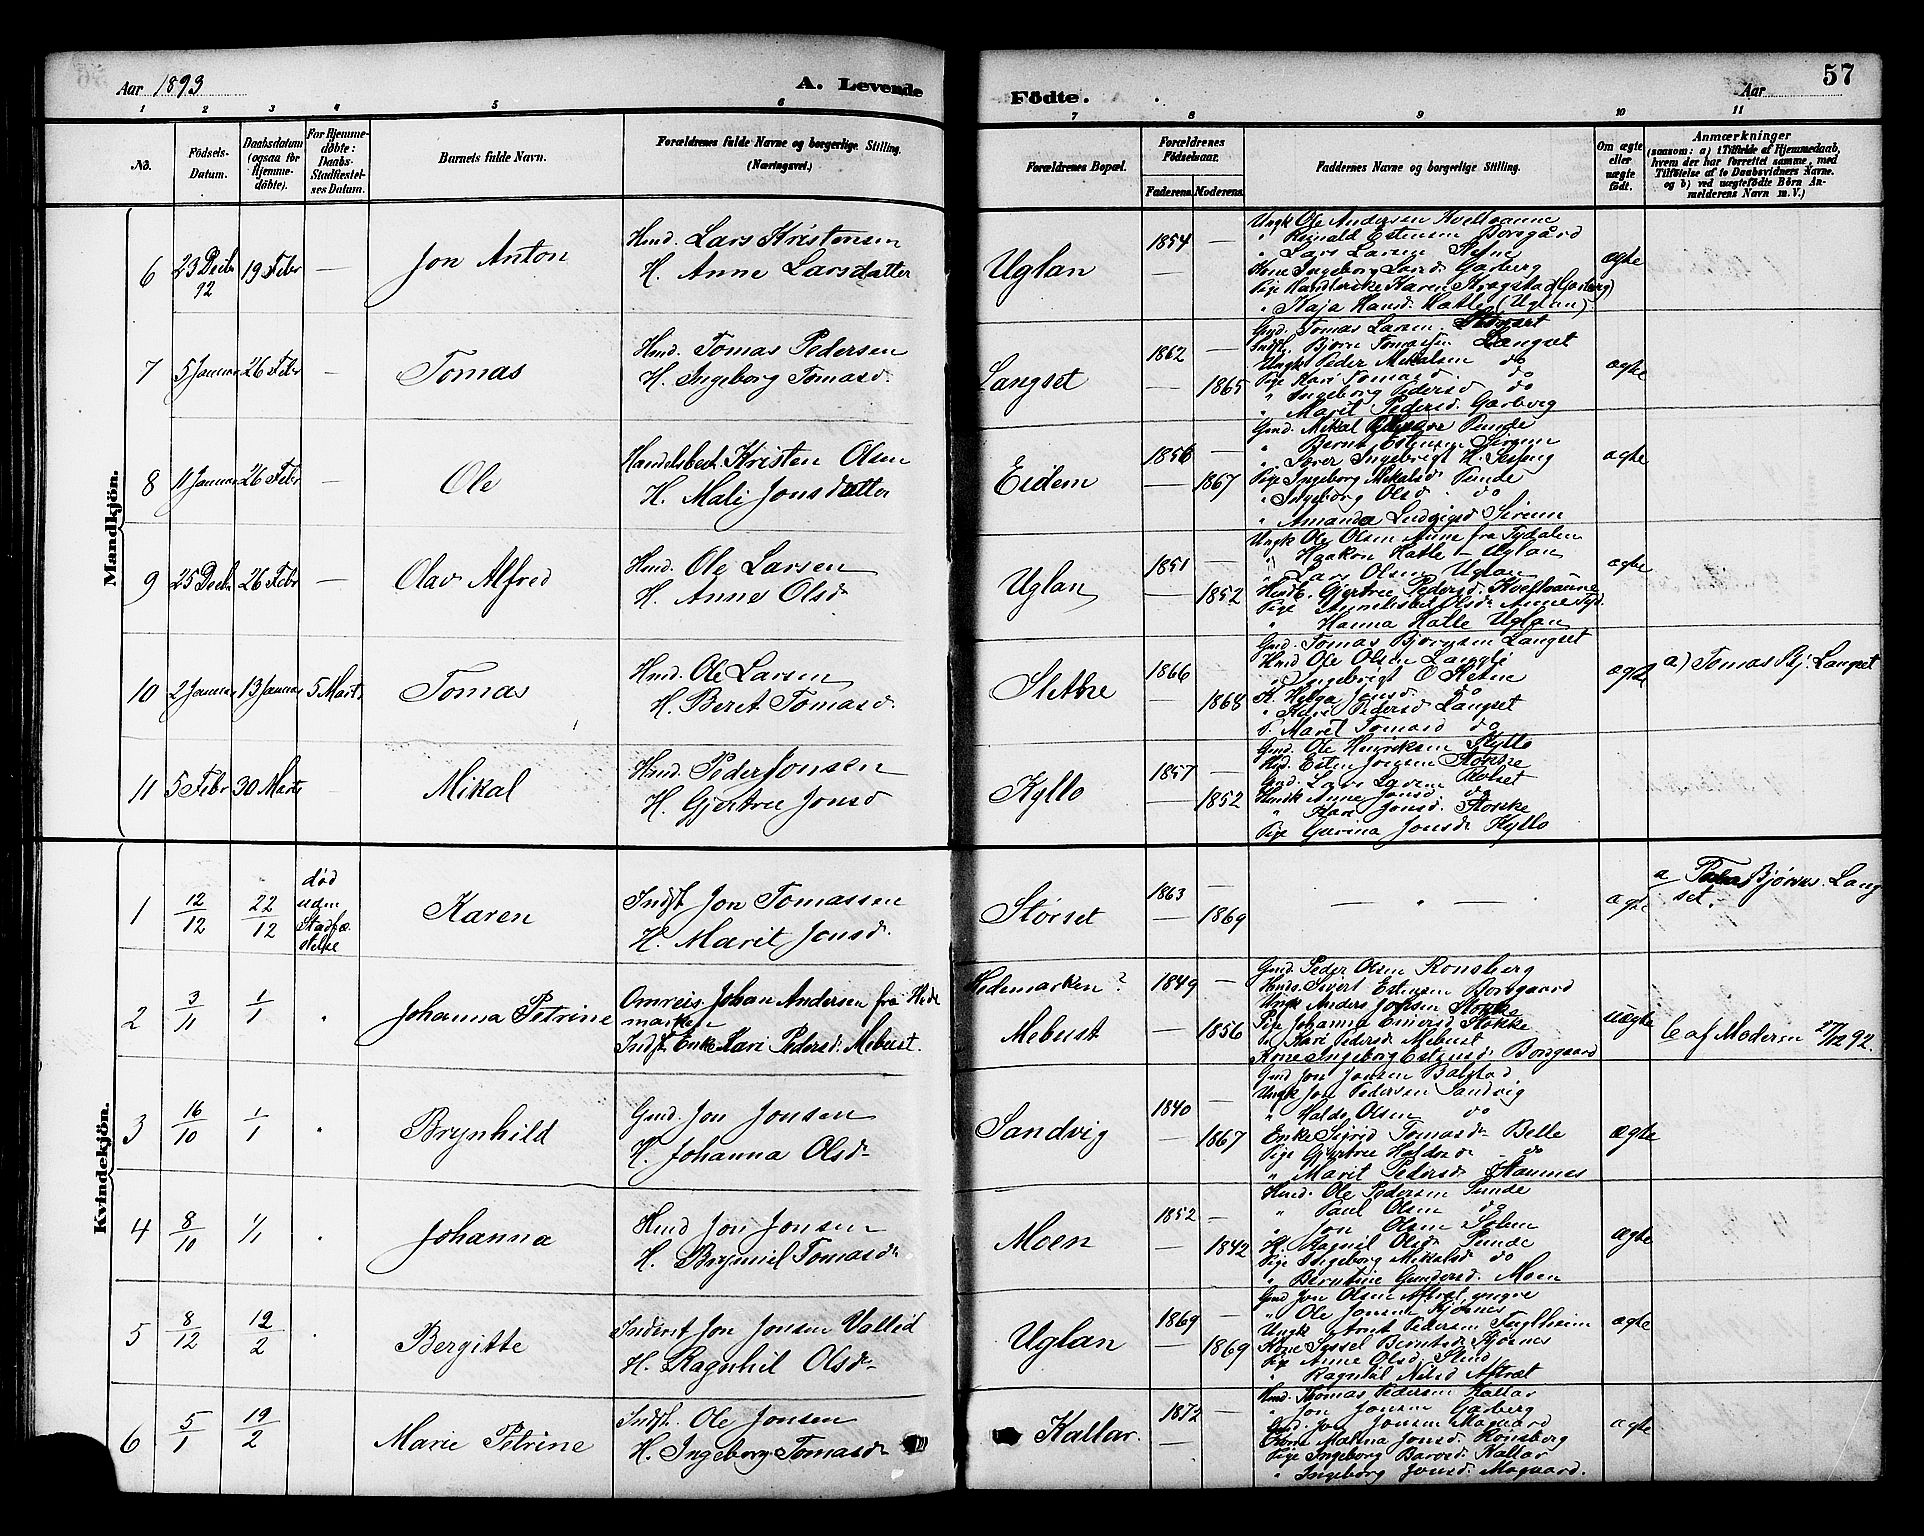 Aar 1893
A. Levende
Födte.
Aar
57
1 2 3 4 5 6 7 8 9 10 11
No.
Födsels-Datum.
Daabsdatum (ogsaa for Hjemme-döbte).
For Hjemme-döbte: Daabs-Stadfæstel-ses Datum.
Barnets fulde Navn.
Forældrenes fulde Navne og borgerlige Stilling. (Næringsvei.)
Forældrenes Bopæl.
Forældrenes Födselsaar.
Faderens. Moderens.
Faddernes Navne og borgerlige Stilling.
Om ægte eller uægte födt.
Anmærkninger (saasom: a) i Tilfælde af Hjemmedaab, hvem der har forrettet samme, med Tilföielse af to Daabsvidners Navne. og b) ved uægtefödte Börn An-melderens Navn m. V.)
Mandkjön.
6 23 Decbr 92 19 Febr — Jon Anton
Hmd. Lars Kristensen
H. Anne Larsdatter
Uglan 1854 — ægte
Ungk Ole Andersen Kvelloanne
" Reinald Estensen Borsgård
" Lars Larsen Stefne
Kone Ingeborg Larsd. Garberg
Pige Handrikke Karen Krogstad (Garberg)
" Kaja Hansd. Hatle (Uglan)
7 5 Januar 26 Febr — Tomas
Hmd. Tomas Pedersen
H. Ingeborg Tomasd.
Langset 1862 — 1865 ægte
Gmd. Tomas Larsen
Indst. Bjørn Tomassen Langset
Ungk Peder Mikalsen do
Pige Kari Tomasd. do
" Ingeborg Pedersd do
" Marit Pedersd. Garberg
8 11 Januar 26 Febr — Ole
Handelsbest. Kristen Olsen
H. Mali Jonsdatter
Eidem 1856 — 1867 ægte
Gmd. Mikal Punde
" Bernt Estensen Sirum
" Iver Ingebrigt H. Sesseng
Pige Ingeborg Mikalsd Punde
" Ingeborg Olsd. do
" Amanda Ludvigsd Sirum
9 25 Decbr 26 Febr — Olav Alfred
Hmd. Ole Larsen
H. Anne Olsd
Uglan 1851 — 1852 ægte
Ungk Ole Olsen Aune fra Tydalen
" Haakon Hatle — Uglan
" Lars Olsen Uglan
Gjertru Pedersd. Kvelloanne
Pige Annelisbet Olsd. Aune Tyd.
" Hanna Hatle Uglan
10 2 Januar 13 Januar 5 Marts Tomas
Hmd. Ole Larsen
H. Beret Tomasd.
Slettre 1866 — 1868 ægte
a) Tomas Bj. Langset
Gmd. Tomas Bjørnsen Langset
Hmd Ole Olsen Langli
" Ingebrigt O.
K. Helga Jonsd. do
" Kari Pedersd Langset
P. Marit Tomasd do
11 5 Febr 30 Marts Mikal
Hmd. Peder Jonsen
H. Gjertru Jonsd
Kyllo 1857 — 1852
Gmd. Ole Henriksen Kyllo
Hmd. Esten Jonsen Stokke
Gmd. Lars Larsen Rolset
Anne Jonsd do
" Kari Jonsd. Stokke
Pige Gurina Jonsd. Kyllo
Kvindekjön.
1 12/12 22/12 død uden Stadfæstelse Karen
Indst Jon Tomassen
H. Marit Jonsd.
Størset 1863 — 1869 — " — ægte
a Bjørns. Langset.
2 3/11 1/1 " Johanna Petrine
Omreis. Johan Andersen fra Hedemarken
Indst. Enke Kari Pedersd. Mebust.
Hedemarken? Mebust 1849 — 1856 uægte
b af Moderen 27/12 92.
Gmd. Peder Olsen Ronsberg
Hmd. Sivert Estensen Borsgaard
Ungk Anders Johsen Stokke
Pige Johanna Einersd Stokke
P. Kari Pedersd Mebust
Kone Ingeborg Estensd. Borsgaard
3 16/10 1/1 " Brynhild
Gmd. Jon Jonsen
H. Johanna Olsd
Sandvig 1840 — 1867 ægte
Gmd Jon Jonsen Balstad
Ungk Jon Pedersen Sandvig
" Haldo Olsen do
Enke Sigrid Tomasd. Belle
Pige Gjertru Haldosd do
" Marit Pedersd Stamnes
4 8/10 1/1 " Johanna
Hmd Jon Jonsen
H. Brynil Tomasd.
Moen 1852 — 1842 ægte
Hmd. Ole Pedersen Punde
" Paul Olsen do
" Jon Olsen Solem
H. Ragnil Olsd. Punde
Pige Ingeborg Mikalsd do
" Berntine Gundersd. Moen
5 8/12 12/2 " Bergitte
Inderst Jon Jonsen Vallid
H. Ragnhil Olsd
Uglan 1869 — 1869 ægte
Gmd Jon Olsen Aftret yngre
" Ole Jonsen Kjøsnes
Ungk Arnt Pedersen Fuglheim
Kone Sissel Berntsd. Kjøsnes
Pige Anne Olsd. Slind
" Ragnhil Nilsd Aftret
6 5/1 19/2 Marie Petrine
Indst. Ole Jonsen
H. Ingeborg Tomasd
Kallar. 1872 — ægte
Hmd. Thomas Pedersen Kallar
" Jon Jonsen Garberg
Gmd. Jon Jonsen Mogaard
Kone Malina Jonsd. Ronsberg
Pige Ingeborg Barosd. Kallar
" Ingeborg Jonsd. Mogaard.